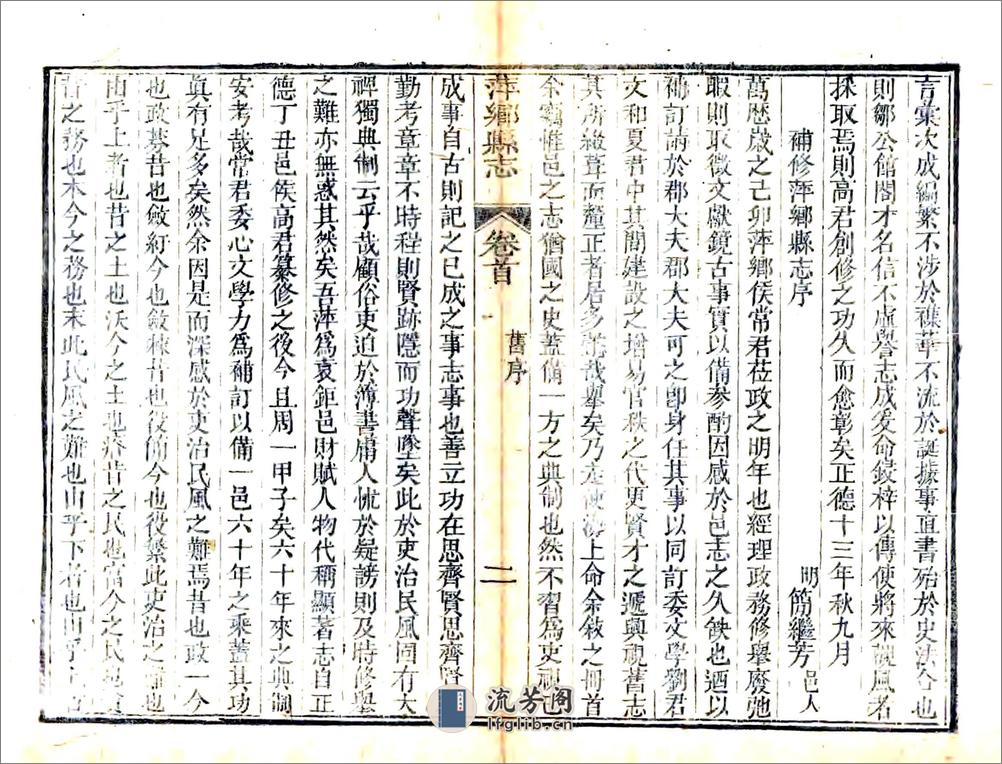 言彙次成編繁不涉於襍華不流於誕據事直書殆於史法合也
則鄒公館閣才名信不虛譽志成爰命鋟梓以傳使將來觀風名
採取焉則高君創修之功久而愈彰矣正德十三年秋九月
補修萍鄉縣志序
明簡繼芳邑人
萬歷歲之己卯萍鄉侯常君莅政之明年也經理政務修舉廢弛
暇則取徵文獻鏡古事實以備參酌因感於邑志之久缺也迺以
補訂請於郡大夫郡大夫可之卽身任其事以同訂委文學劉君
文和夏君中其間建設之增易官秩之代更賢才之遞興視舊志
其所綴葺而釐正者居多懿哉舉矣乃走使海上命余敘之冊首
余竊惟邑之志猶國之史蓋備一方之典制也然不習爲吏視
萍鄉縣志
卷首
舊序
二
成事自古則記之已成之事志事也善立功在思齊賢思齊賢
勤考章章不時程則賢跡隱而功聲墜矣此於吏治民風固有大
禆獨典制云乎哉顧俗吏迫於簿書庸人怵於疑謗則及時修舉
之難亦無惑其然矣吾萍爲袁鉅邑財賦人物代稱顯著志自正
德丁丑邑侯高君纂修之後今且周一甲子矣六十年來之典制
安考哉常君委心文學力爲補訂以備一邑六十年之乘蓋其功
眞有足多矣然余因是而深感於吏治民風之難焉昔也政一今
也政棼昔也斂紓今也斂棘昔也役簡今也役繁此吏治之
由乎上者也昔之土也沃今之土也瘠昔之民也富今之民也
昔之務也本今之務也末此民風之難也由乎下者也由乎
流芳阁
lfglib.cn